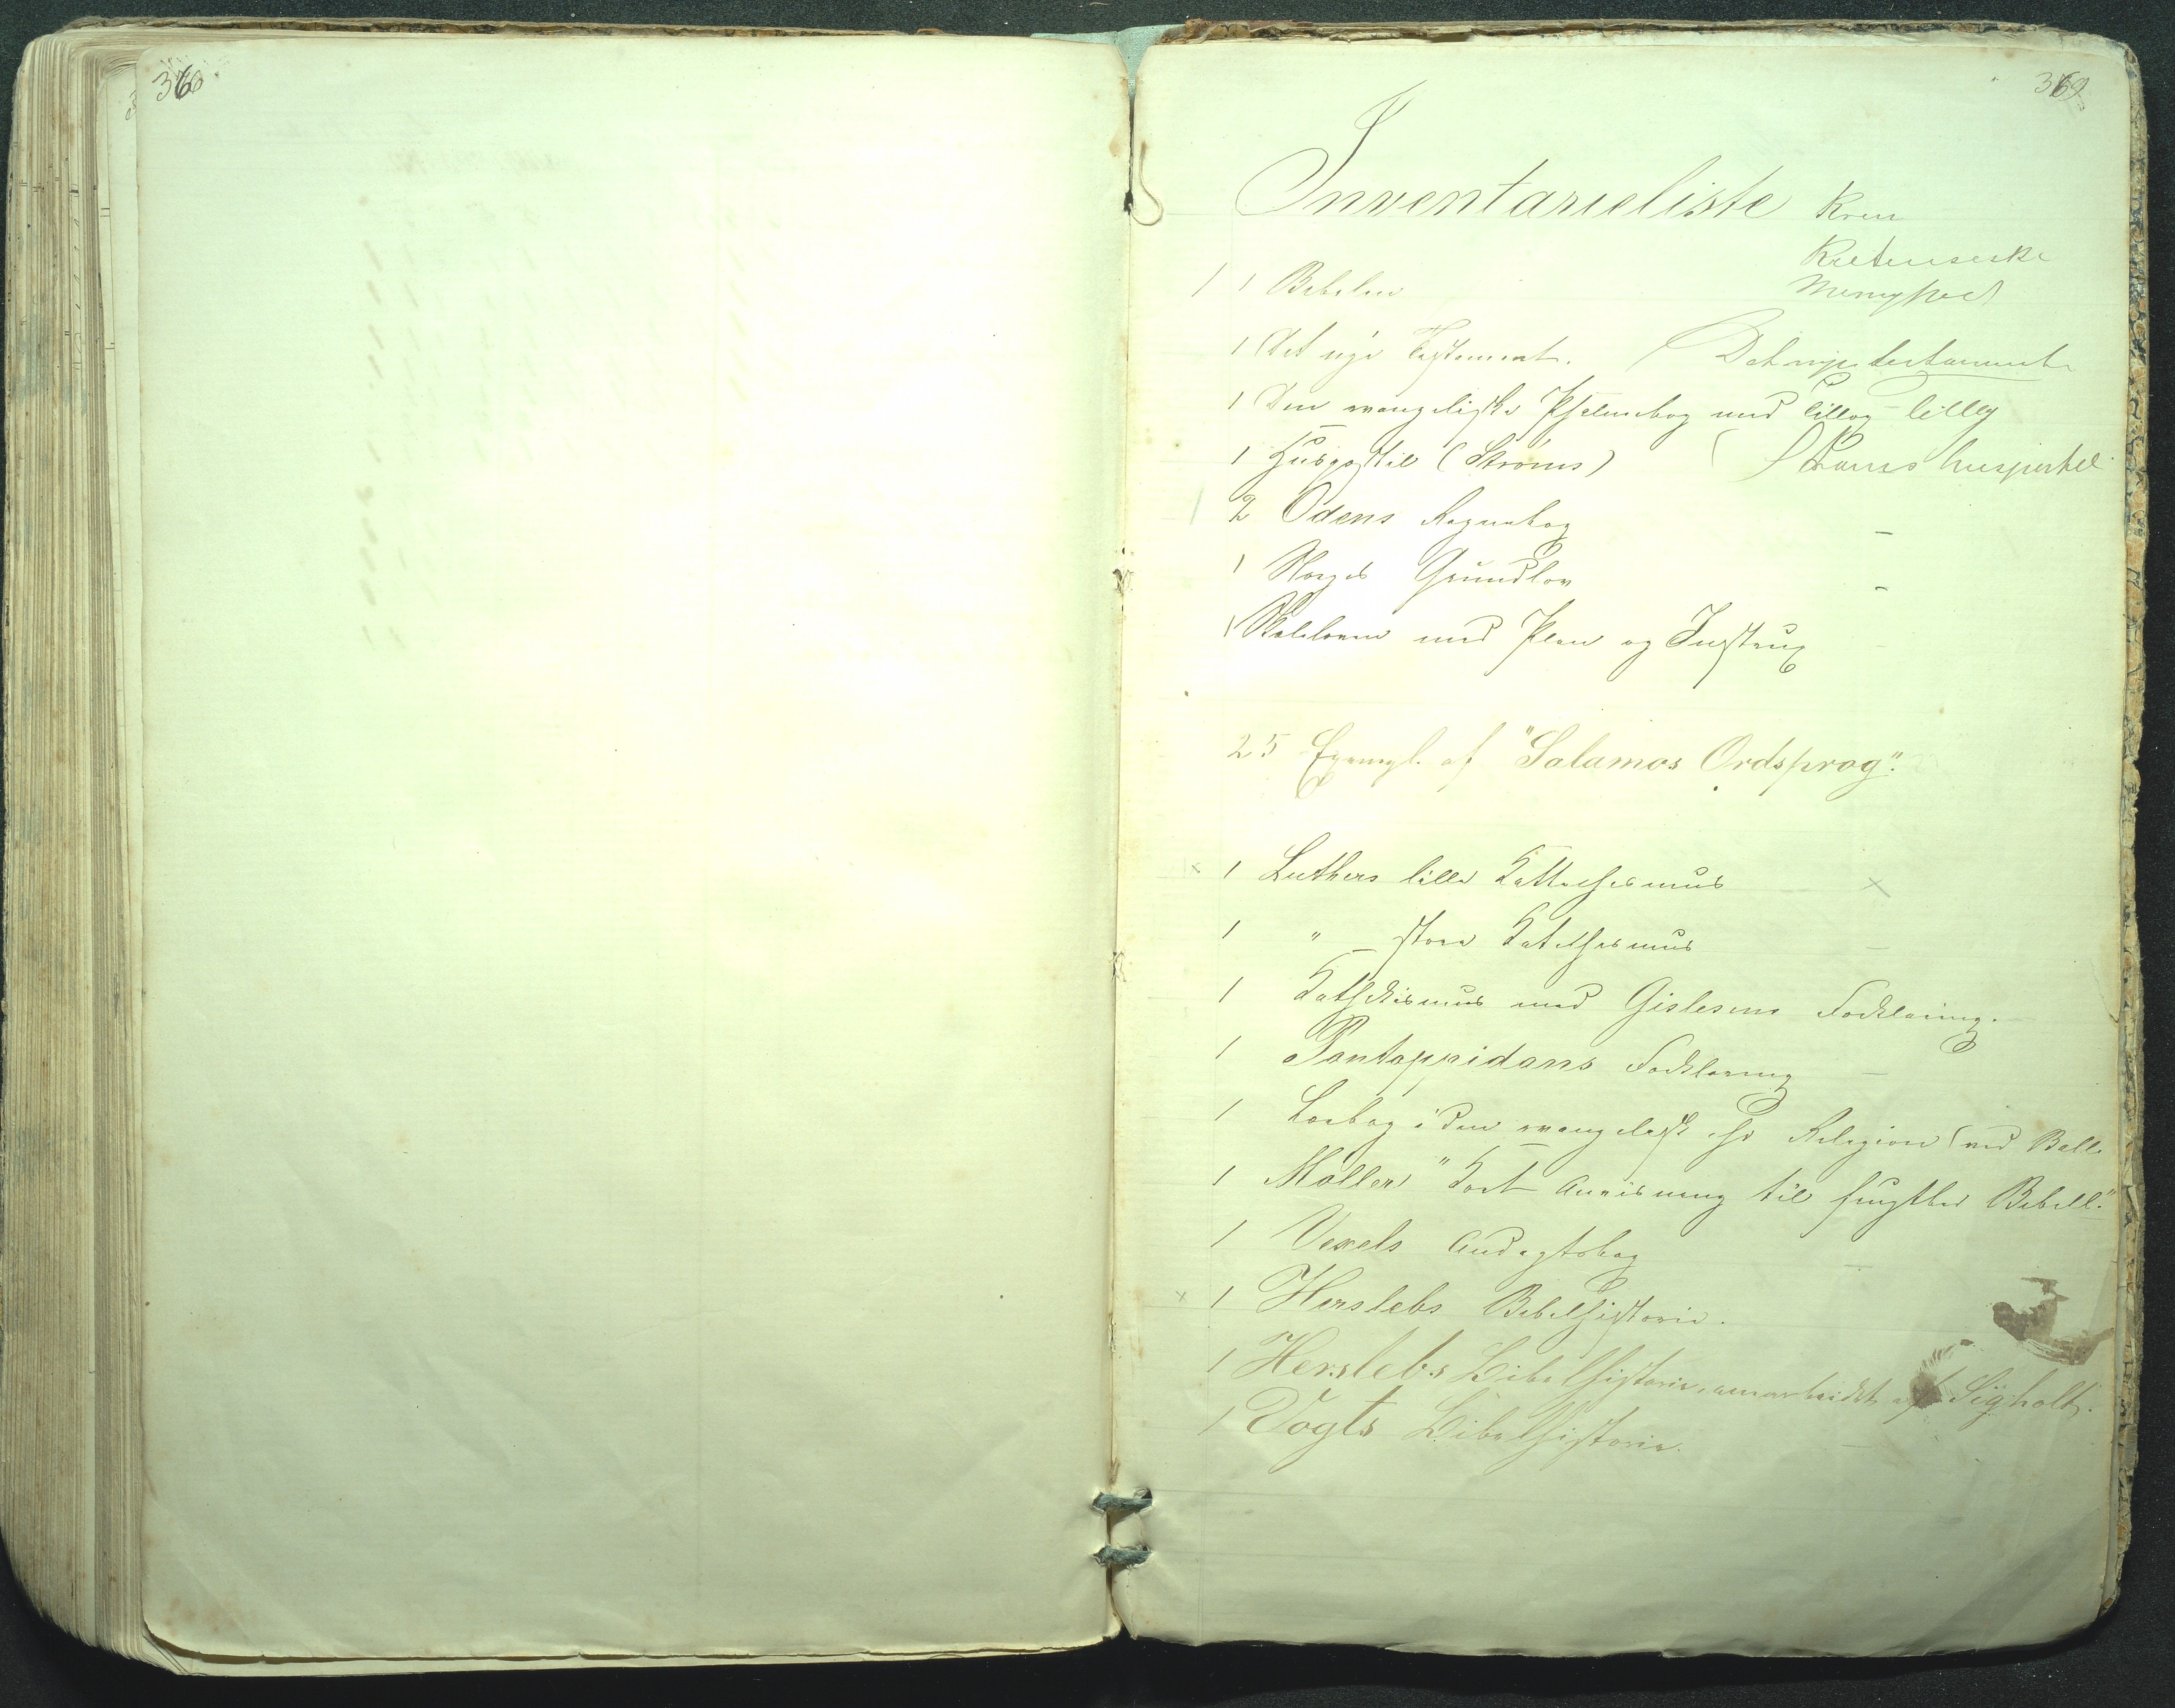 36
369
Inventarieliste
1 1 Bibelen
1 Det nye Testament. Det nye testamente
1 Den evangeliske Psalmebog med Tillæg
1 Huspostil (Strøms)
2 Odens Regnebog
1 Norges Grundlov
1 Skoleloven med Plan og Instrux
25 Exempl. af "Salamos Ordsprog".
x 1 Luthers lille Kattechismus x
1 " store Katechismus
1 Katechismus med Gislesens Forklaring.
1 Pontoppidans Forklaring
1 Lærebog i den evangelisk chr Religion ved Balle
1 Møller "Kort Anvisning til frugtbr Bibell."
1 Vexels Andagtsbog
x 1 Herslebs Bibelhistorie.
1 Herslebs Bibelhistorie, omarbeidet af Sigholt.
1 Vogts Bibelhistorie.